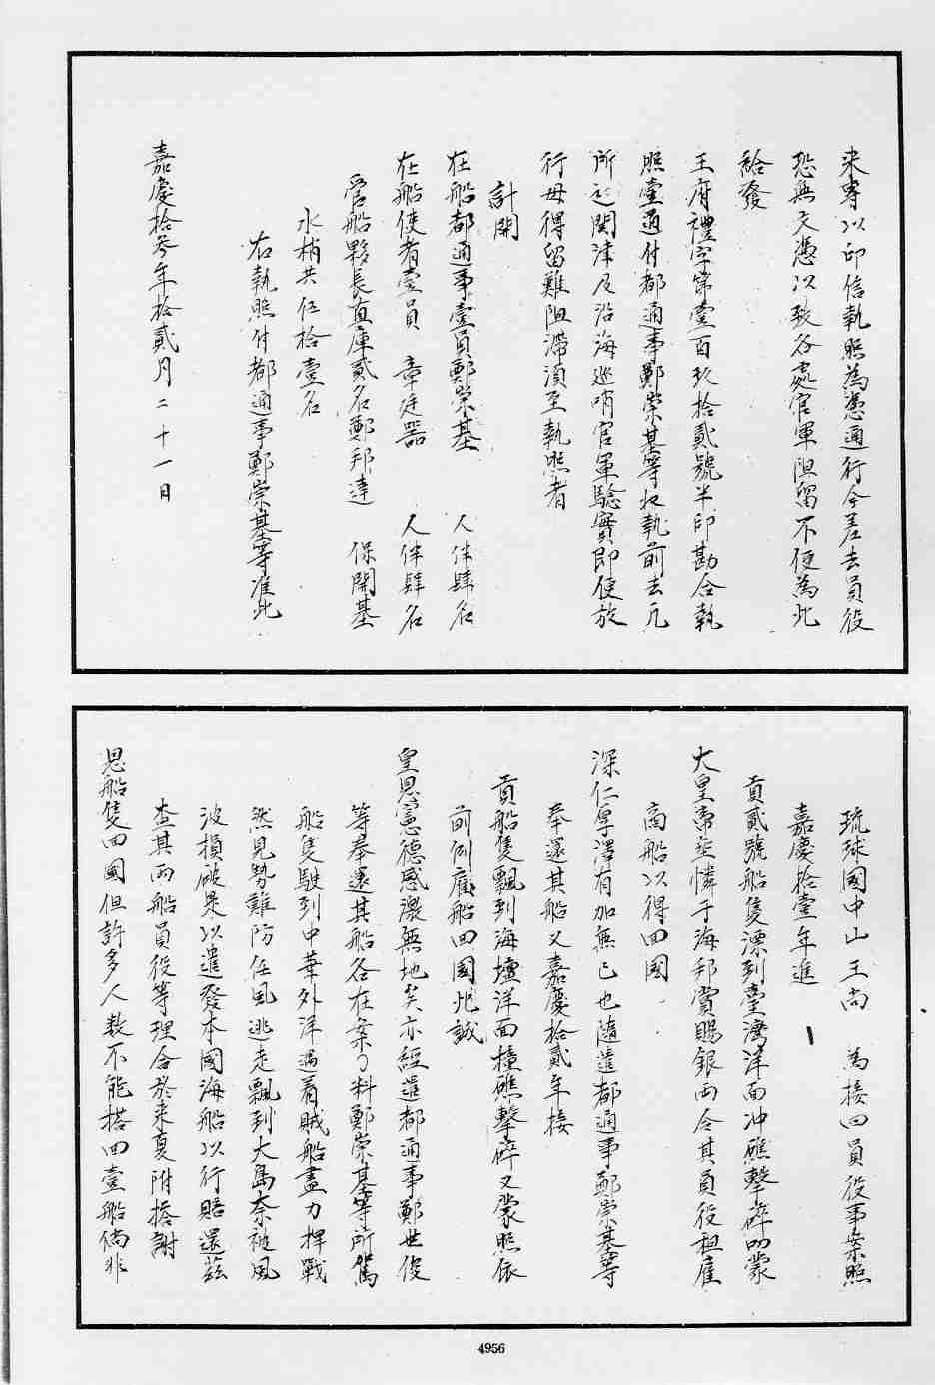 来專以印信執照為憑通行今差去員役
恐無文憑以致各處官軍阻留不便為此
給發
王府禮字第壹百玖拾貳號半印勘合執
照壹通付都通事鄭崇基等收執前去凡
所過関津及沿海巡哨官軍驗實即便放
行毋得留難阻滯湏至執照者
計開
在船都通事壹員鄭崇基 人伴肆名
在船使者壹員 章廷器 人伴肆名
管船夥長直庫貳名鄭邦達 保開基
水梢共伍拾壹名
右執照付都通事鄭崇基等准此
嘉慶拾叁年拾貳月二十一日
琉球國中山王尚 為接回員役事案照
嘉慶拾壹年進
貢貳號船隻漂到臺灣洋面冲礁擊碎叨蒙
大皇帝垂憐于海邦賞賜銀兩令其員役租雇
商船以得回國
深仁厚澤有加無已也隨遣都通事鄭崇基等
奉還其船又嘉慶拾貳年接
貢船隻飄到海壇洋面撞礁擊碎又蒙照依
前例雇船回國此誠
皇恩憲德感激無地矣亦經遣都通事鄭世俊
等奉還其船各在案料鄭崇基等所駕
船隻駛到中華外洋遇着賊船盡力捍戰
然見勢難防任風逃走飄到大島奈被風
波損破是以遣發本國海船以行賠還茲
查其兩船員役等理合於来夏附搭謝
恩船隻回國但許多人数不能搭回壹船倘非
4956